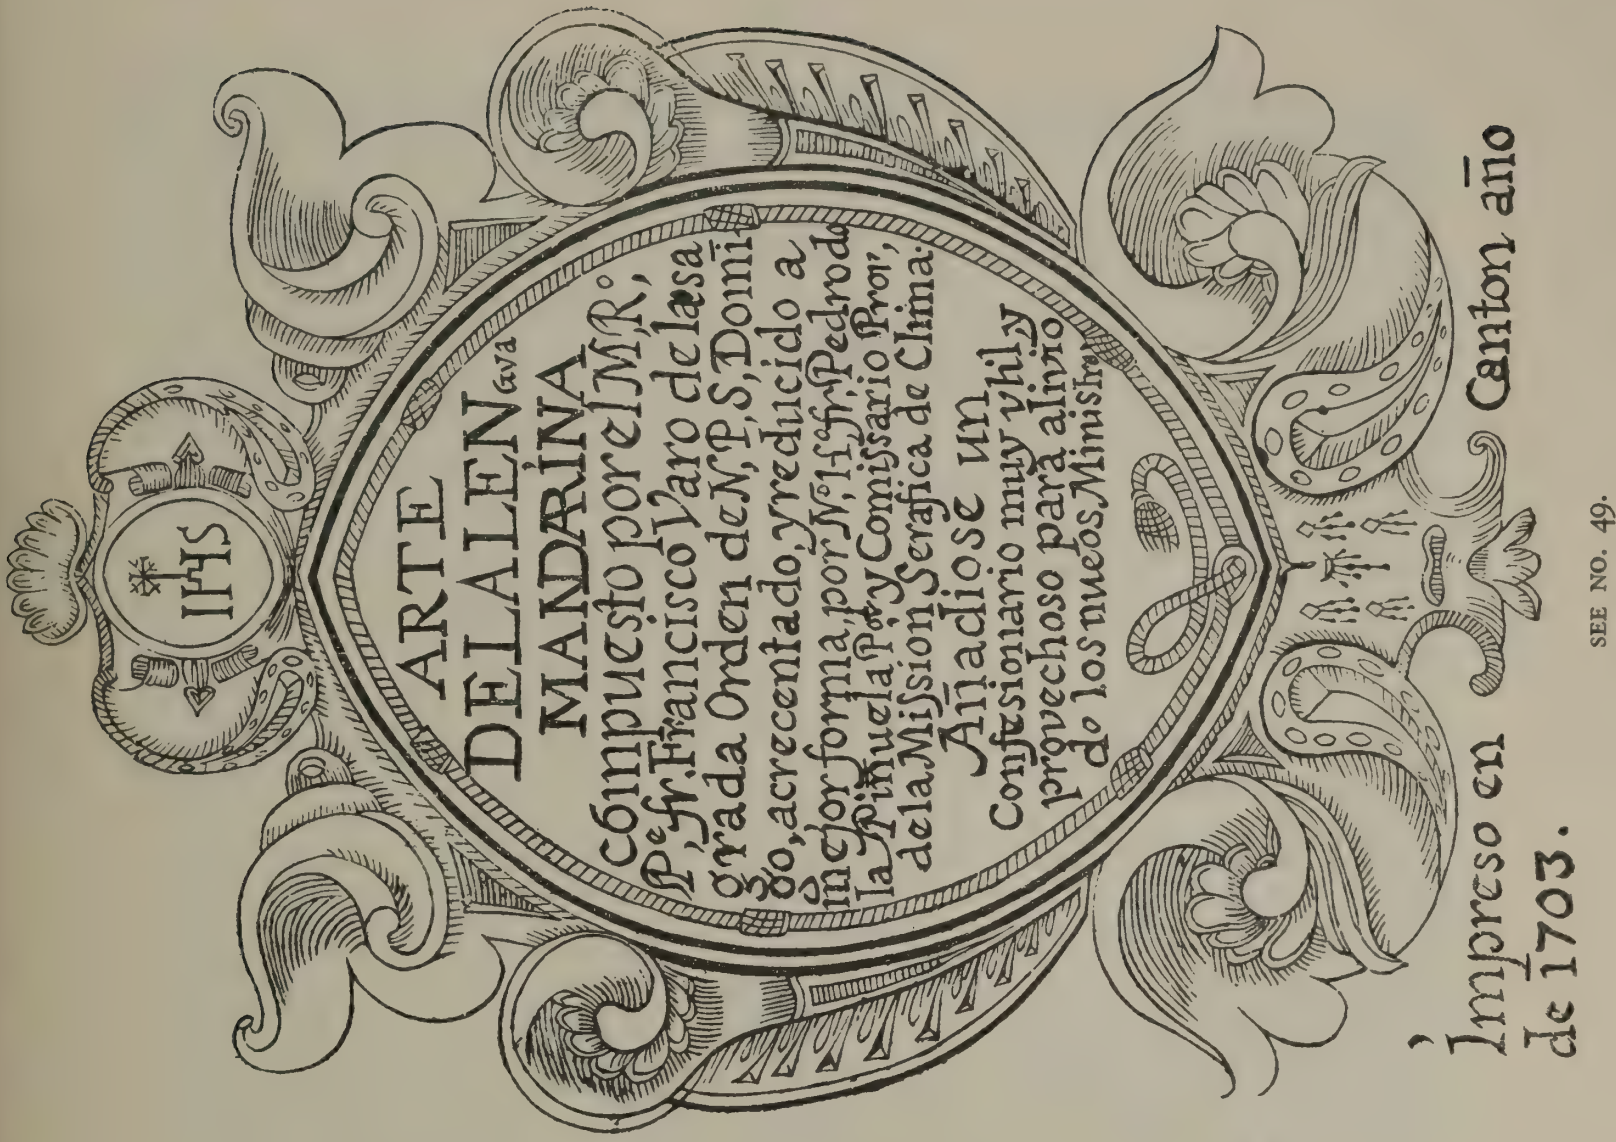 IHS
ARTE
DE LA LENGVA
MANDARINA
cōmpuesto por el M, Rº,
Pe, fr. Francisco Varo de la sa
grada Orden de N, P, S, Domī
go, acrecentado, y reducido a
mejor forma, por Nº, Hº, fr, Pedro de
la Piñuela Pᵒʳ, y Comissario Pror,
de la Mission Serafica de China.
Añadiose un
Confesionario muy vtil, y
provechoso para alivio
de los nueos Ministros
Impreso en Canton año
de 1703.
SEE NO. 49.